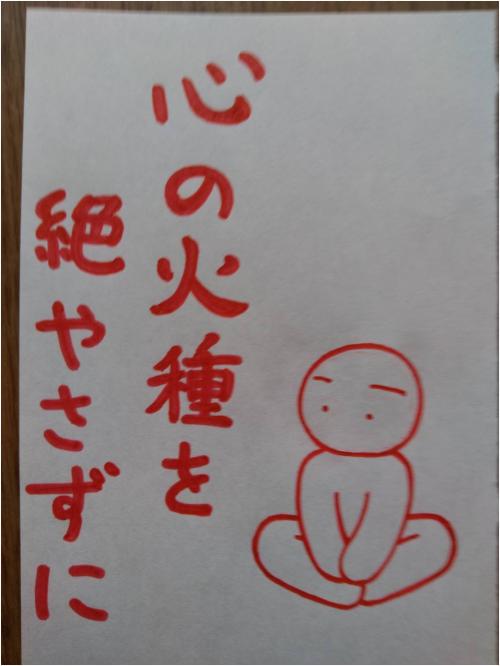 心の火種を
絶やさずに